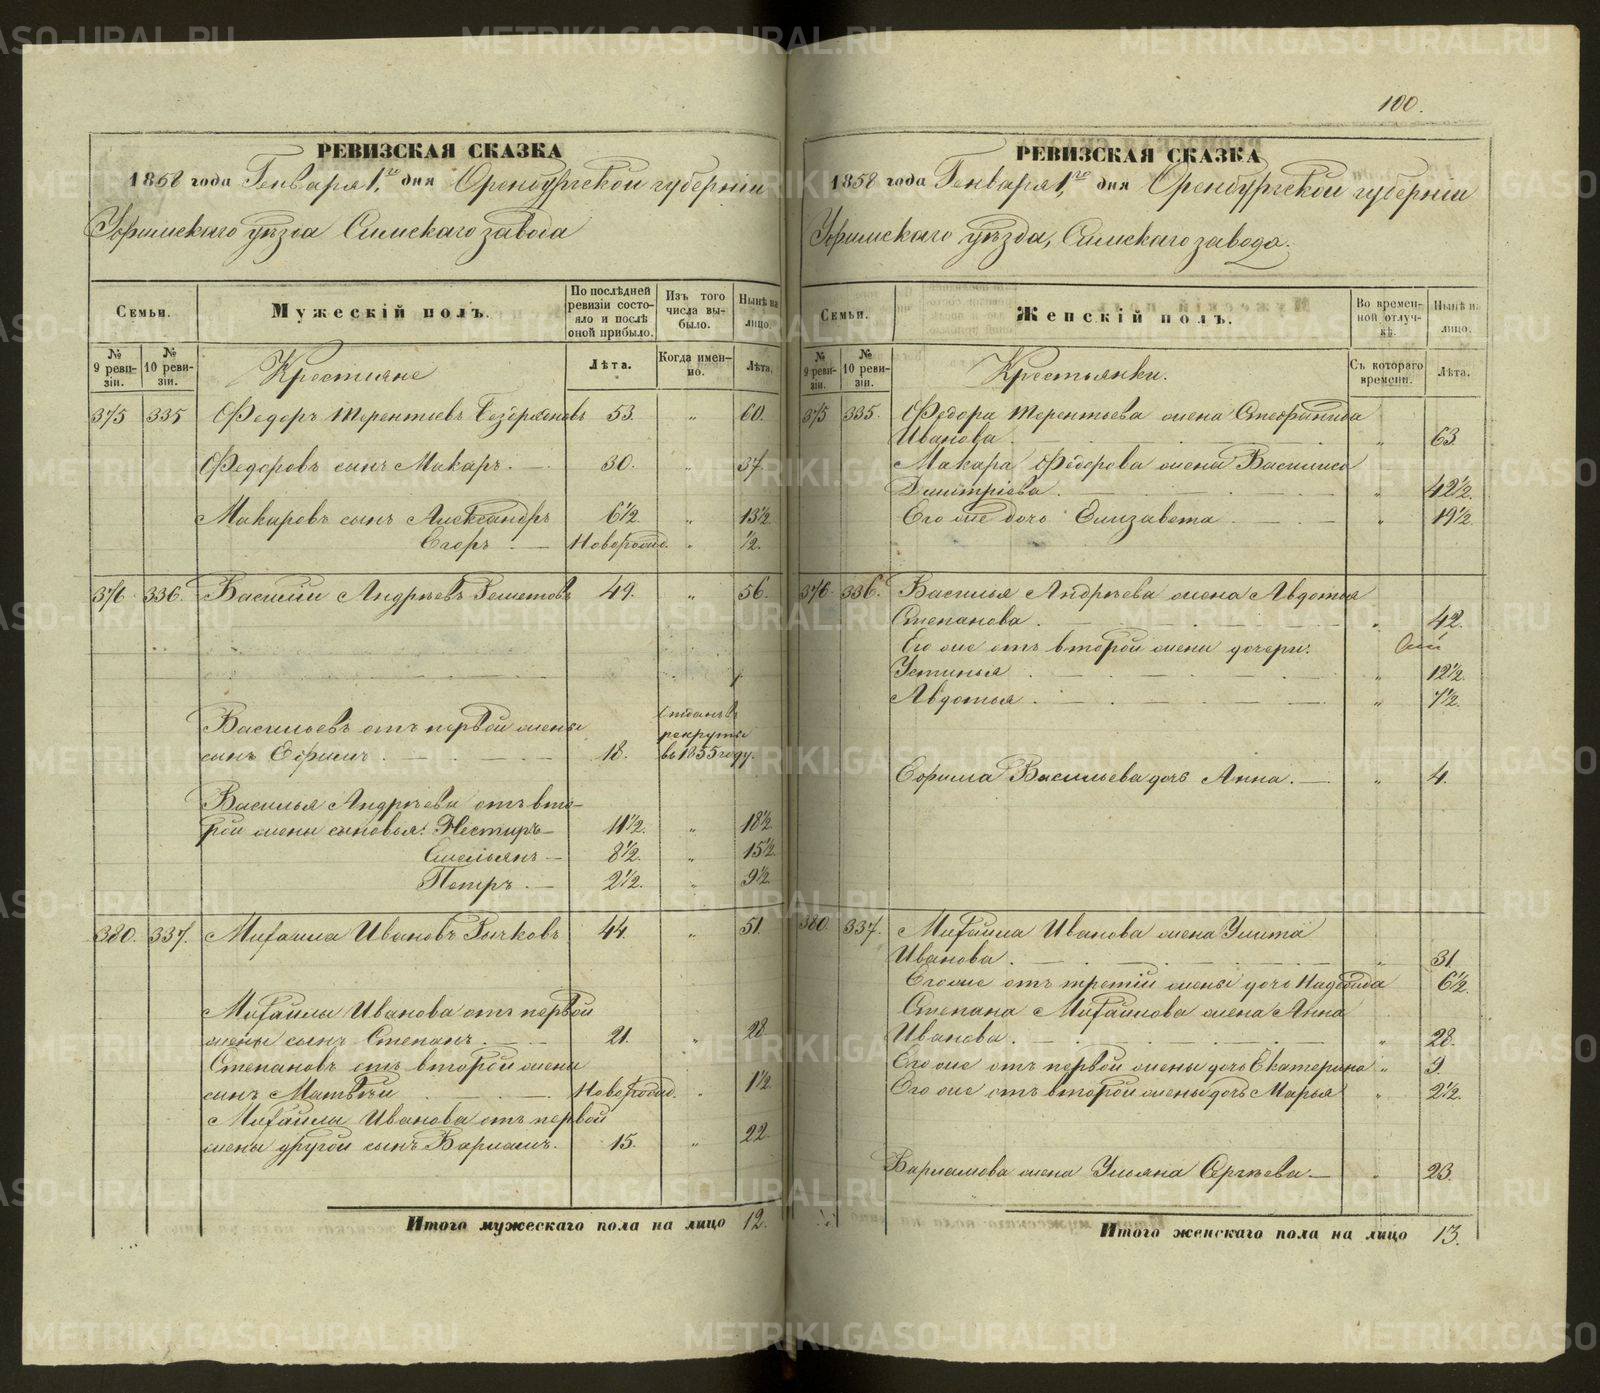 100.
РЕВИЗСКАЯ СКАЗКА
1858 года Генваря 1го дня Оренбургской губерніи
Уфимскаго уѣзда Симскаго завода
Семьи.
Мужескій полъ.
По послѣдней ревизіи состояло и послѣ оной прибыло.
Изъ того числа выбыло.
Нынѣ на лицо.
№ 9 ревизіи.
№ 10 ревизіи.
Крестьяне
Лѣта.
Когда именно.
Лѣта.
375 335 Ѳедоръ Терентьевъ 53. " 60.
Ѳедоровъ сынъ Макаръ. 30. " 37.
Макаровъ сынъ Александръ 6½ " 13½
Егоръ Новорожд. " ½.
376 336. Василій Андрѣевъ 49. " 56.
Васильевъ отъ первой жены
сынъ Ефимъ 18. отданъ въ рекруты въ 1855 году.
Василья Андрѣева отъ вто-
рой жены сыновья: Нестиръ 11½. " 18½
Емельянъ 8½. " 15½
Петръ 2½. " 9½
380. 337. Михаила Ивановъ Рычковъ 44. " 51.
Михайлы Иванова отъ первой
жены сынъ Степанъ 21. " 28
Степановъ отъ второй жены
сынъ Матвѣй Новорожд. " 1½
Михайлы Иванова отъ первой
жены другой сынъ Варламъ. 15. " 22
Итого мужескаго пола на лицо 12.
РЕВИЗСКАЯ СКАЗКА
1858 года Генваря 1го дня Оренбургской губерніи
Уфимскаго уѣзда, Симскаго завода.
Семьи.
Женскій полъ.
Во временной отлучкѣ.
Нынѣ на лицо.
№ 9 ревизіи.
№ 10 ревизіи.
Крестьянки.
Съ котораго времени.
Лѣта.
375 335. Ѳедора Терентьева жена Стефанида
Иванова " 63
Макара Ѳедорова жена Василиса
Дмитріева " 42½.
Его же дочь Елизавета " 19½.
376 336. Василья Андрѣева жена Авдотья
Степанова " 42.
Его же отъ второй жены дочери:
Устинья " 12½.
Авдотья " 7½.
Ефима Васильева дочь Анна. " 4.
380 337. Михайла Иванова жена Улита
Иванова " 31
Его же отъ третій жены дочь Надежда 6½.
Степана Михайлова жена Анна
Иванова " 28.
Его же отъ первой жены дочь Екатерина " 9.
Его же отъ второй жены дочь Марья " 2½.
Варламова жена Ульяна Сергѣева " 23.
Итого женскаго пола на лицо 13.
METRIKI.GASO-URAL.RU